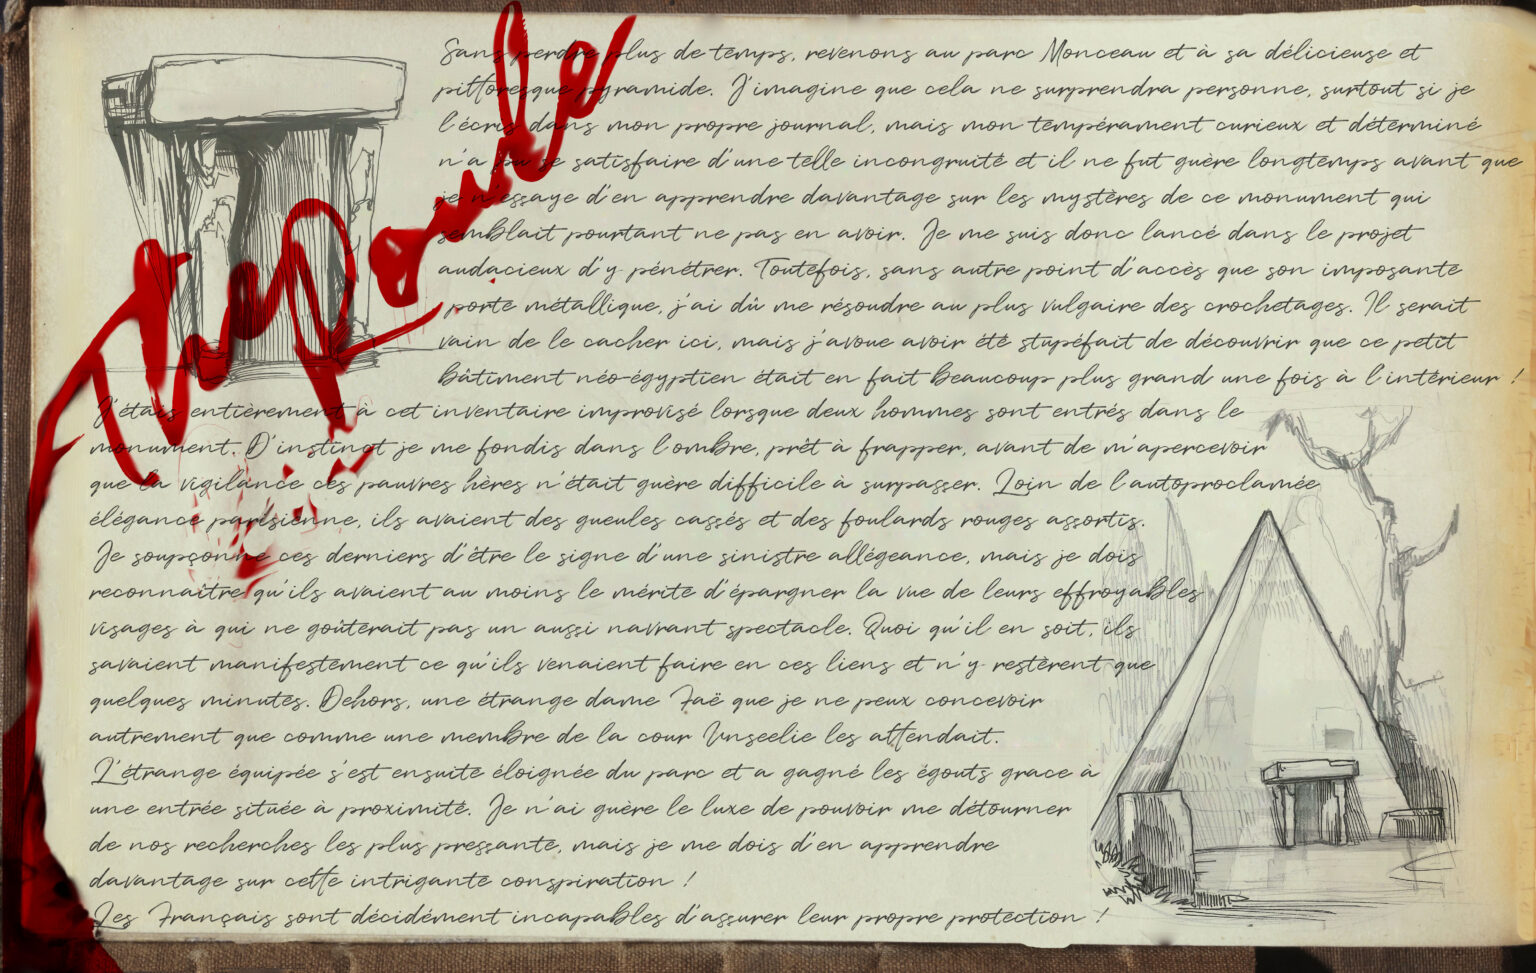 Sans perdre plus de temps, revenons au parc Monceau et à sa délicieuse et
pittoresque pyramide. J'imagine que cela ne surprendra personne, surtout si je
l'écris dans mon propre journal, mais mon tempérament curieux et déterminé
n'a pu se satisfaire d'une telle incongruité et il ne fut guère longtemps avant que
je n'essaye d'en apprendre davantage sur les mystères de ce monument qui
semblait pourtant ne pas en avoir. Je me suis donc lancé dans le projet
audacieux d'y pénétrer. Toutefois, sans autre point d'accès que son imposante
porte métallique, j'ai dû me résoudre au plus vulgaire des crochetages. Il serait
vain de le cacher ici, mais j'avoue avoir été stupéfait de découvrir que ce petit
bâtiment néo-égyptien était en fait beaucoup plus grand une fois à l'intérieur !
J'étais entièrement à cet inventaire improvisé lorsque deux hommes sont entrés dans le
monument. D'instinct je me fondis dans l'ombre, prêt à frapper, avant de m'apercevoir
que la vigilance ces pauvres hères n'était guère difficile à surpasser. Loin de l'autoproclamée
élégance parisienne, ils avaient des gueules cassés et des foulards rouges assortis.
Je soupçonne ces derniers d'être le signe d'une sinistre allégeance, mais je dois
reconnaître qu'ils avaient au moins le mérite d'épargner la vue de leurs effroyables
visages à qui ne goûterait pas un aussi navrant spectacle. Quoi qu'il en soit, ils
savaient manifestement ce qu'ils venaient faire en ces liens et n'y restèrent que
quelques minutes. Dehors, une étrange dame Faë que je ne peux concevoir
autrement que comme une membre de la cour Unseelie les attendait.
L'étrange équipée s'est ensuite éloignée du parc et a gagné les égouts grace à
une entrée située à proximité. Je n'ai guère le luxe de pouvoir me détourner
de nos recherches les plus pressante, mais je me dois d'en apprendre
davantage sur cette intrigante conspiration !
Les Français sont décidément incapables d'assurer leur propre protection !